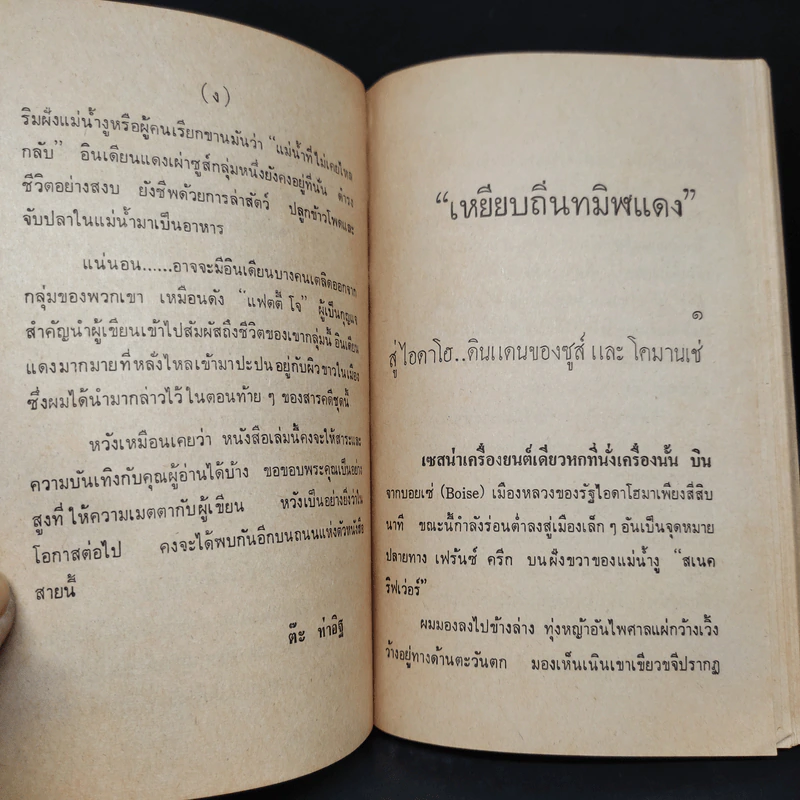 (ง)
ริมฝั่งแม่น้ำงูหรือผู้คนเรียกขานมันว่า “แม่น้ำที่ไม่เคยไหล
กลับ” อินเดียนแดงเผ่าซูส์กลุ่มหนึ่งยังคงอยู่ที่นั่น ดำรง
ชีวิตอย่างสงบ ยังชีพด้วยการล่าสัตว์ ปลูกข้าวโพดและ
จับปลาในแม่น้ำมาเป็นอาหาร
แน่นอน......อาจจะมีอินเดียนบางคนเตลิดออกจาก
กลุ่มของพวกเขา เหมือนดัง “แฟตตี้ โจ” ผู้เป็นกุญแจ
สำคัญนำผู้เขียนเข้าไปสัมผัสถึงชีวิตของเขากลุ่มนี้ อินเดียน
แดงมากมายที่หลั่งไหลเข้ามาปะปนอยู่กับผิวขาวในเมือง
ซึ่งผมได้นำมากล่าวไว้ในตอนท้าย ๆ ของสารคดีชุดนี้
หวังเหมือนเคยว่า หนังสือเล่มนี้คงจะให้สาระและ
ความบันเทิงกับคุณผู้อ่านได้บ้าง ขอขอบพระคุณเป็นอย่าง
สูงที่ให้ความเมตตากับผู้เขียน หวังเป็นอย่างยิ่งว่าใน
โอกาสต่อไป คงจะได้พบกันอีกบนถนนแห่งตัวหนังสือ
สายนี้
ต๊ะ ท่าอิฐ
“เหยียบถิ่นทมิฬแดง”
๑
สู่ ไอดาโฮ..ดินแดนของซูส์ และ โคมานเช่
เซสน่าเครื่องยนต์เดียวหกที่นั่งเครื่องนั้น บิน
จากบอยเซ่ (Boise) เมืองหลวงของรัฐไอดาโฮมาเพียงสี่สิบ
นาที ขณะนี้กำลังร่อนต่ำลงสู่เมืองเล็ก ๆ อันเป็นจุดหมาย
ปลายทาง เฟร้นซ์ ครีก บนฝั่งขวาของแม่น้ำงู “สเนค
ริฟเว่อร์”
ผมมองลงไปข้างล่าง ทุ่งหญ้าอันไพศาลแผ่กว้างเวิ้ง
ว้างอยู่ทางด้านตะวันตก มองเห็นเนินเขาเขียวขจีปรากฏ